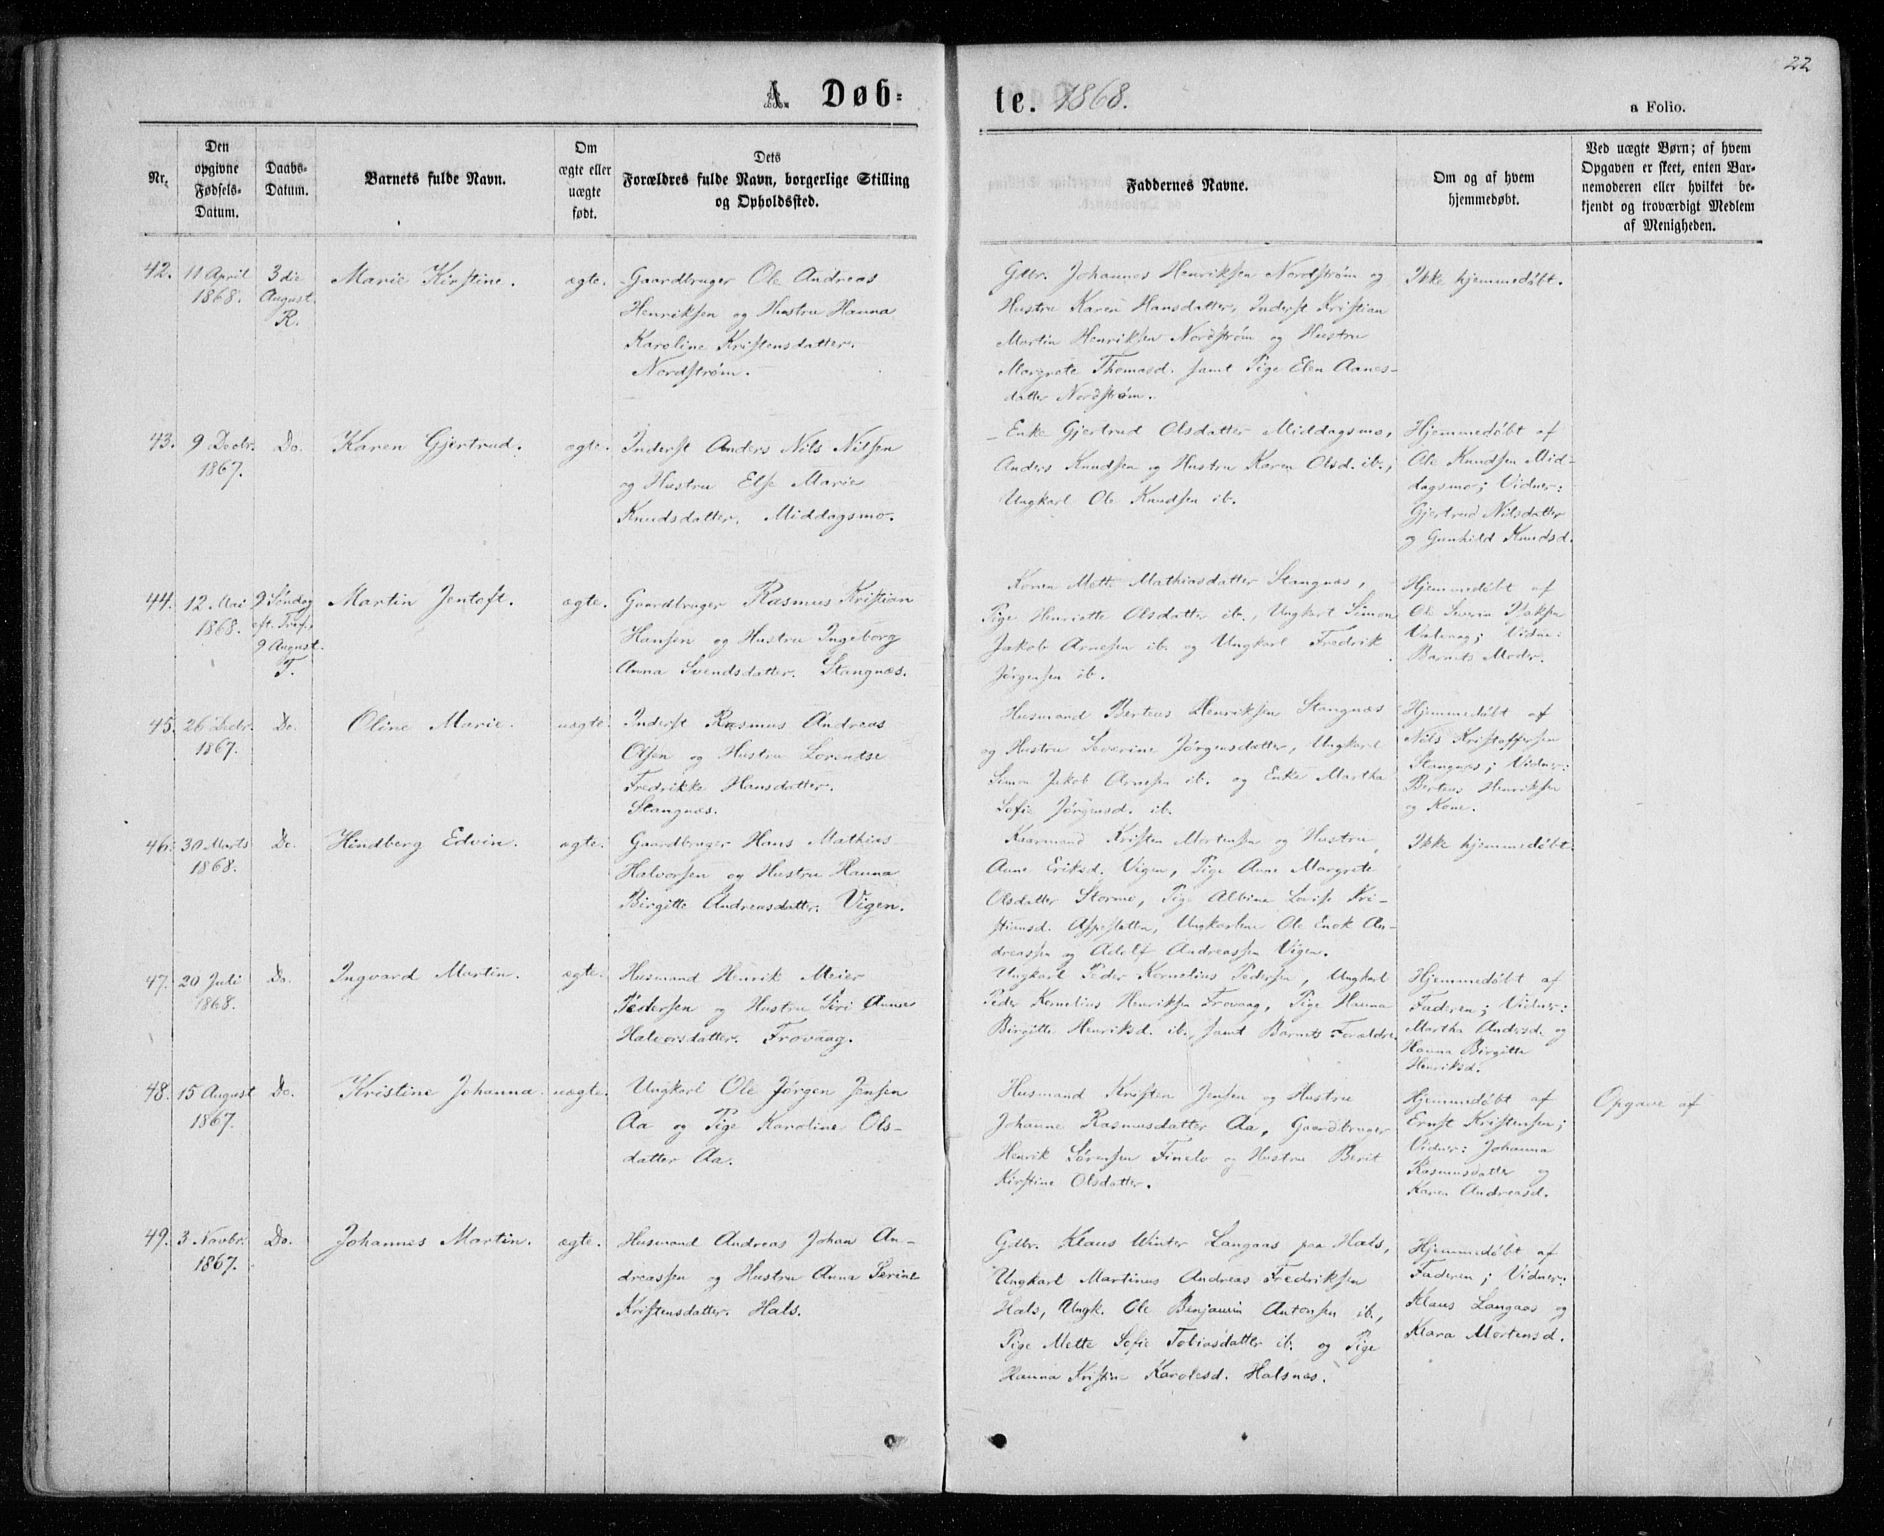 22
A. Døb-
te. 1868.
a Folio.
Nr.
Den
opgivne
Fødsels-
Datum.
Daabs-
Datum.
Barnets fulde Navn.
Om
ægte eller
uægte
født.
Dets
Forældres fulde Navn, borgerlige Stilling
og Opholdssted.
Faddernes Navne.
Om og af hvem
hjemmedøbt.
Ved uægte Børn; af hvem
Opgaven er skeet, enten Bar-
nemoderen eller hvilket be-
kjendt og troværdigt Medlem
af Menigheden.
42.
11 April
1868.
3die
August.
R.
Marie Kirstine.
ægte.
Gaardbruger Ole Andreas
Henriksen og Hustru Hanna
Karoline Kristensdatter.
Nordstrøm.
Gdbr. Johannes Henriksen Nordstrøm og
Hustru Karen Hansdatter, Inderst Kristian
Martin Henriksen Nordstrøm og Hustru
Margrete Thomasd. samt Pige Elen Aanes-
datter Nordstrøm.
Ikke hjemmedøbt.
43.
9 Decbr.
1867.
Do.
Karen Gjertrud.
ægte.
Inderst Anders Nils Nilsen
og Hustru Else Marie
Knudsdatter. Middagsmo.
Enke Gjertrud Olsdatter Middagsmo,
Anders Knudsen og Hustru Karen Olsd. ib.,
Ungkarl Ole Knudsen ib.
Hjemmedøbt af
Ole Knudsen Mid-
dagsmo; Vidner:
Gjertrud Nilsdatter
og Gunhild Knudsd.
44.
12 Mai
1868.
9 Søndag
eft. Tref.
9 August.
T.
Martin Jentoft.
ægte.
Gaardbruger Rasmus Kristian
Hansen og Hustru Ingeborg
Anna Svendsdatter. Stangnæs.
Konen Mette Mathiasdatter Stangnæs,
Pige Henriette Olsdatter ib., Ungkarl Simon
Jakob Arnesen ib. og Ungkarl Fredrik
Jørgensen ib.
Hjemmedøbt af
Ole Severin Isaksen
Vidne:
Barnets Moder.
45.
26 Decbr.
1867.
Do.
Oline Marie.
uægte.
Inderst Rasmus Andreas
Olsen og Hustru Lorentse
Fredrikke Hansdatter.
Stangnæs.
Husmand Berteus Henriksen Stangnæs
og Hustru Severine Jørgensdatter, Ungkarl
Simon Jakob Arnesen ib. og Enke Martha
Sofie Jørgensd. ib.
Hjemmedøbt af
Nils Kristoffersen
Stangnæs; Vidner:
Berteus Henriksen
og Kone.
46.
30 Marts
1868.
Do.
Hindberg Edvin.
ægte.
Gaardbruger Hans Mathias
Halvorsen og Hustru Hanna
Birgitte Andreasdatter. Vigen.
Kaarmand Kristen Mortensen og Hustru
Anne Eriksd. Vigen, Pige Anne Margrete
Olsdatter Storme, Pige Albine Lovise Kri-
stiansd. Ungkarlene Ole Enok An-
dreassen og Adolf Andreassen Vigen.
Ikke hjemmedøbt.
47.
20 Juli
1868.
Do.
Ingvard Martin.
ægte.
Husmand Henrik Meier
Pedersen og Hustru Siri Anne
Halvorsdatter. Frovaag.
Ungkarl Peder Kornelius Pedersen, Ungkarl
Peder Kornelius Henriksen Frovaag, Pige Hanna
Birgitte Henriksd. ib., samt Barnets Forældre.
Hjemmedøbt af
Faderen; Vidner:
Martha Andersd. og
Hanna Birgitte
Henriksd.
48.
15 August
1867.
Do.
Kristine Johanna.
uægte.
Ungkarl Ole Jørgen Jensen
Aa og Pige Karoline Ols-
datter Aa.
Husmand Kristen Jensen og Hustru
Johanne Rasmusdatter Aa, Gaardbruger
Henrik Sørensen Finelv og Hustru Berit
Kirstine Olsdatter.
Hjemmedøbt af
Ernst Kristensen;
Vidner: Johanna
Rasmusdatter og
Karen Andreasd.
Opgave af
49.
3 Novbr.
1867.
Do.
Johannes Martin.
ægte.
Husmand Andreas Johan An-
dreassen og Hustru Anna Serine
Kristensdatter. Hals.
Gdbr. Klaus Winter Langaas paa Hals,
Ungkarl Martinus Andreas Fredriksen
Hals, Ungk. Ole Benjamin Antonsen ib.,
Pige Mette Sofie Tobiasdatter ib. og Pige
Hanna Kristine Karolesd. Halsnæs.
Hjemmedøbt af
Faderen; Vidner:
Klaus Langaas og
Klara Mortensd.